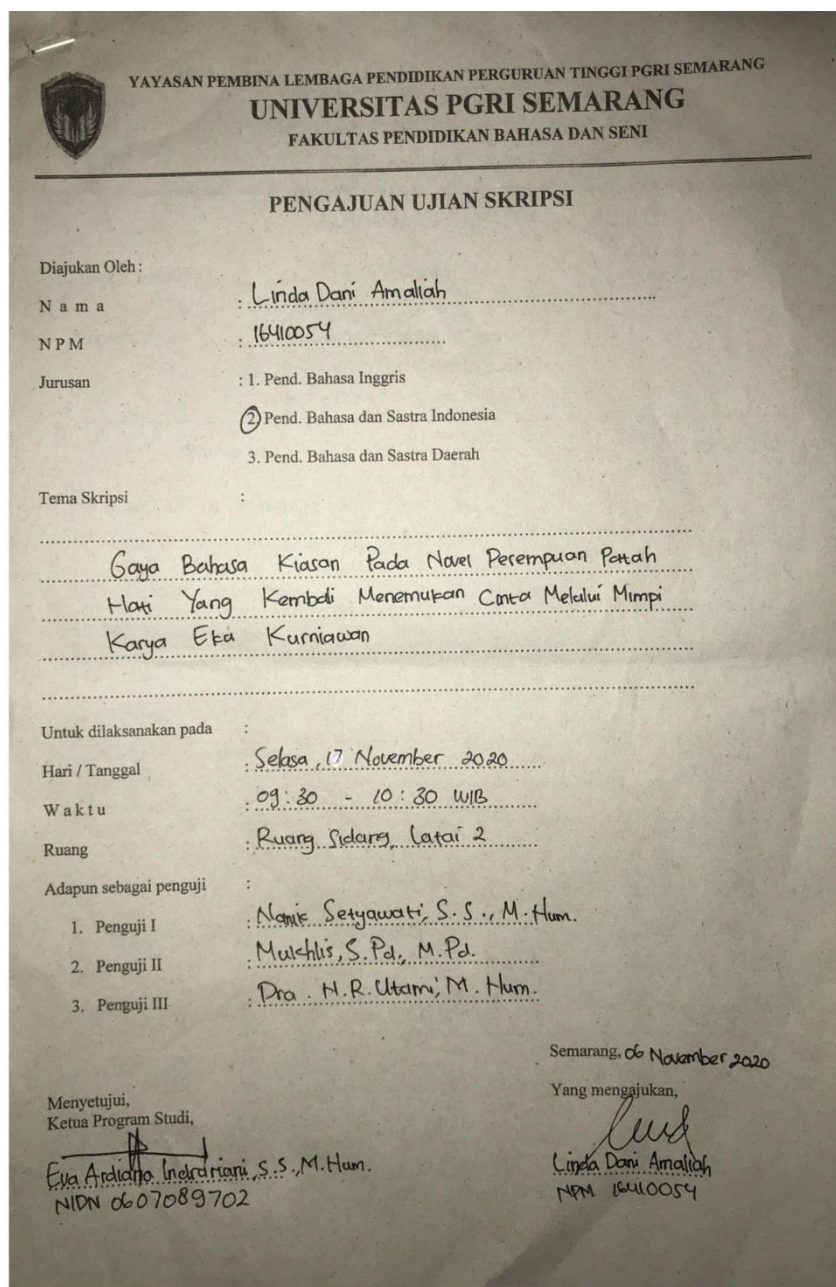 YAYASAN PEMBINA LEMBAGA PENDIDIKAN PERGURUAN TINGGI PGRI SEMARANG
UNIVERSITAS PGRI SEMARANG
FAKULTAS PENDIDIKAN BAHASA DAN SENI
PENGAJUAN UJIAN SKRIPSI
Diajukan Oleh :
N a m a : Linda Dani Amaliah
N P M : 16410054
Jurusan : 1. Pend. Bahasa Inggris
2. Pend. Bahasa dan Sastra Indonesia
3. Pend. Bahasa dan Sastra Daerah
Tema Skripsi :
Gaya Bahasa Kiasan Pada Novel Perempuan Patah
Hati Yang Kembali Menemukan Cinta Melalui Mimpi
Karya Eka Kurniawan
Untuk dilaksanakan pada :
Hari / Tanggal : Selasa, 17 November 2020
W a k t u : 09:30 - 10:30 WIB
Ruang : Ruang Sidang, Latai 2
Adapun sebagai penguji :
1. Penguji I : Nanik Setyawati, S.S., M.Hum.
2. Penguji II : Mukhlis, S.Pd., M.Pd.
3. Penguji III : Dra. H.R. Utami, M.Hum.
Semarang, 06 November 2020
Menyetujui,
Ketua Program Studi,
Eva Ardiana Indrariani, S.S., M.Hum.
NIDN 0607089702
Yang mengajukan,
Linda Dani Amaliah
NPM 16410054